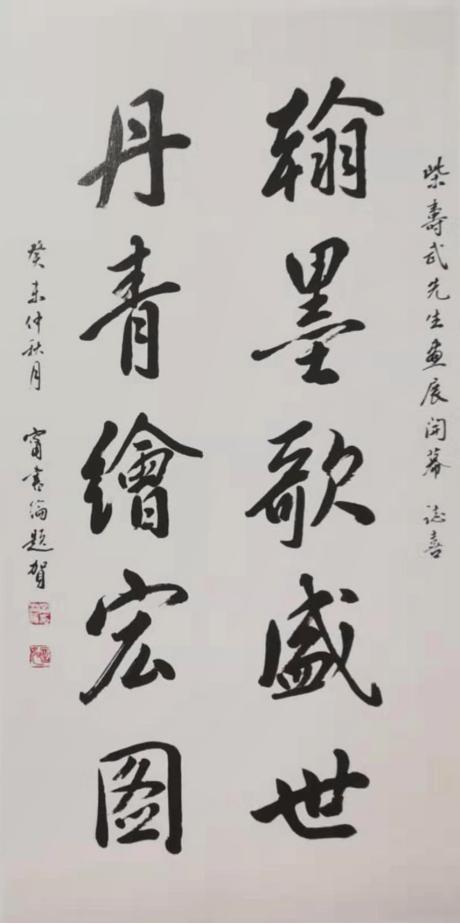 柴壽武先生畫展開幕 誌喜
翰墨歌盛世
丹青繪宏图
癸未仲秋月 甯書倫題贺